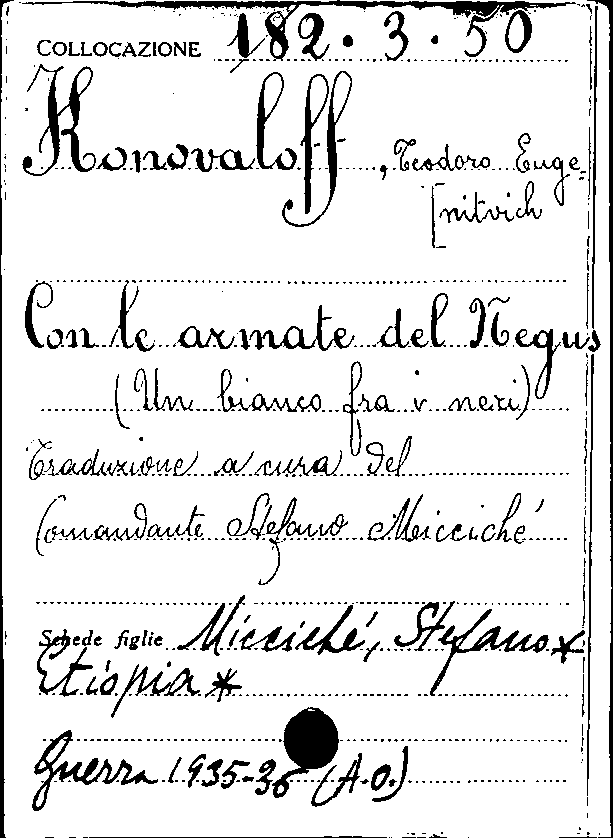 COLLOCAZIONE 182.3.50
Konovaloff, Teodoro Euge=
[nitvich
Con le armate del Negus
(Un bianco fra i neri)
Traduzione a cura del
Comandante Stefano Micciché
Schede figlie Micciché, Stefano*
Etiopia*
Guerra 1935-36 (A.O.)